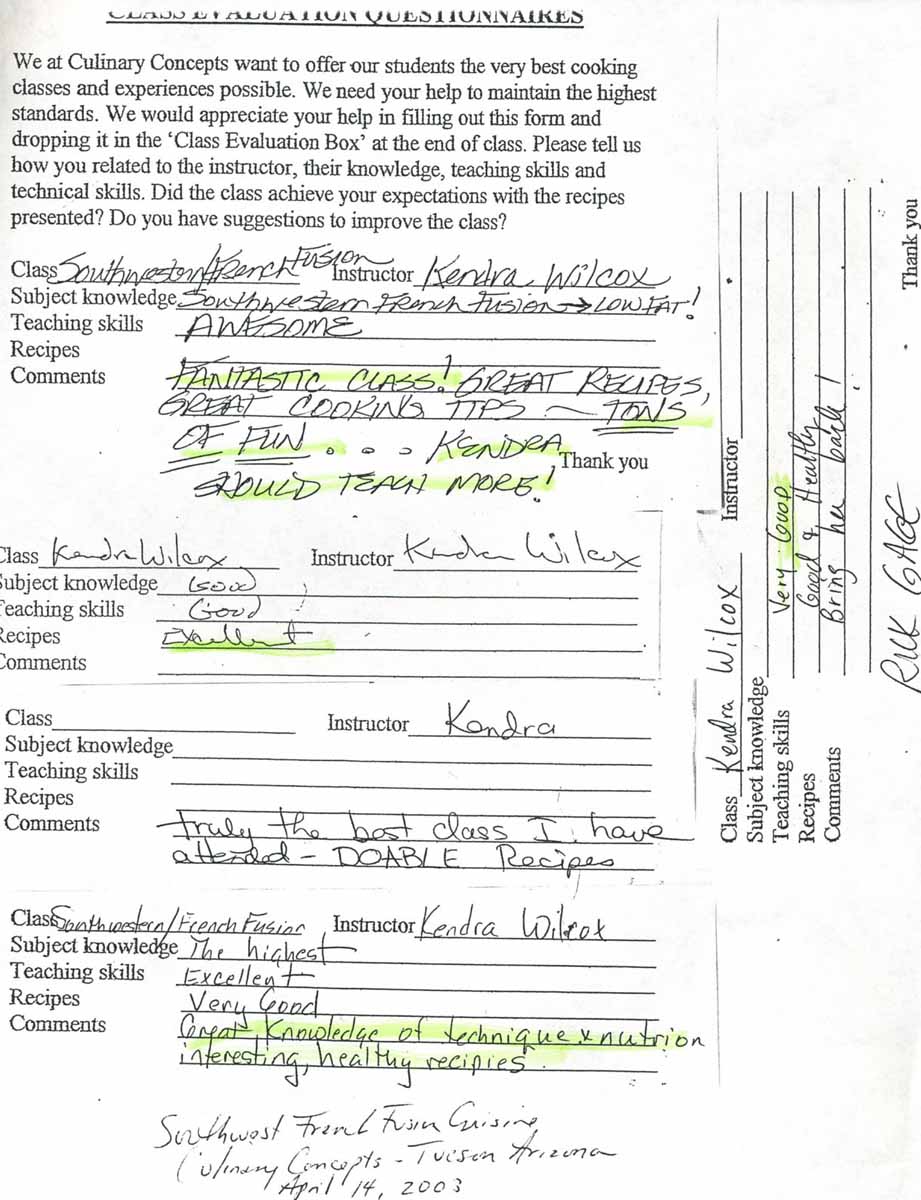 CLASS EVALUATION QUESTIONNAIRES
We at Culinary Concepts want to offer our students the very best cooking
classes and experiences possible. We need your help to maintain the highest
standards. We would appreciate your help in filling out this form and
dropping it in the ‘Class Evaluation Box’ at the end of class. Please tell us
how you related to the instructor, their knowledge, teaching skills and
technical skills. Did the class achieve your expectations with the recipes
presented? Do you have suggestions to improve the class?
Class Southwestern/French Fusion Instructor Kendra Wilcox
Subject knowledge Southwestern French Fusion → LOW FAT!
Teaching skills AWESOME
Recipes
Comments FANTASTIC CLASS! GREAT RECIPES,
GREAT COOKING TIPS ~ TONS
OF FUN . . . KENDRA
Thank you
SHOULD TEACH MORE!
Class Kendra Wilcox Instructor Kendra Wilcox
Subject knowledge Good
Teaching skills Good
Recipes Excellent
Comments
Class Instructor Kendra
Subject knowledge
Teaching skills
Recipes
Comments truly the best class I have
attended - DOABLE Recipes
Class Southwestern/French Fusion Instructor Kendra Wilcox
Subject knowledge The highest
Teaching skills Excellent
Recipes Very Good
Comments Great Knowledge of technique & nutrion
interesting, healthy recipies.
Southwest French Fusion Cuisine
Culinary Concepts - Tucson Arizona
April 14, 2003
Class Kendra Wilcox Instructor
Subject knowledge
Teaching skills Very Good
Recipes Good & Healthy
Comments Bring her back!
Thank you
RICK GAGE